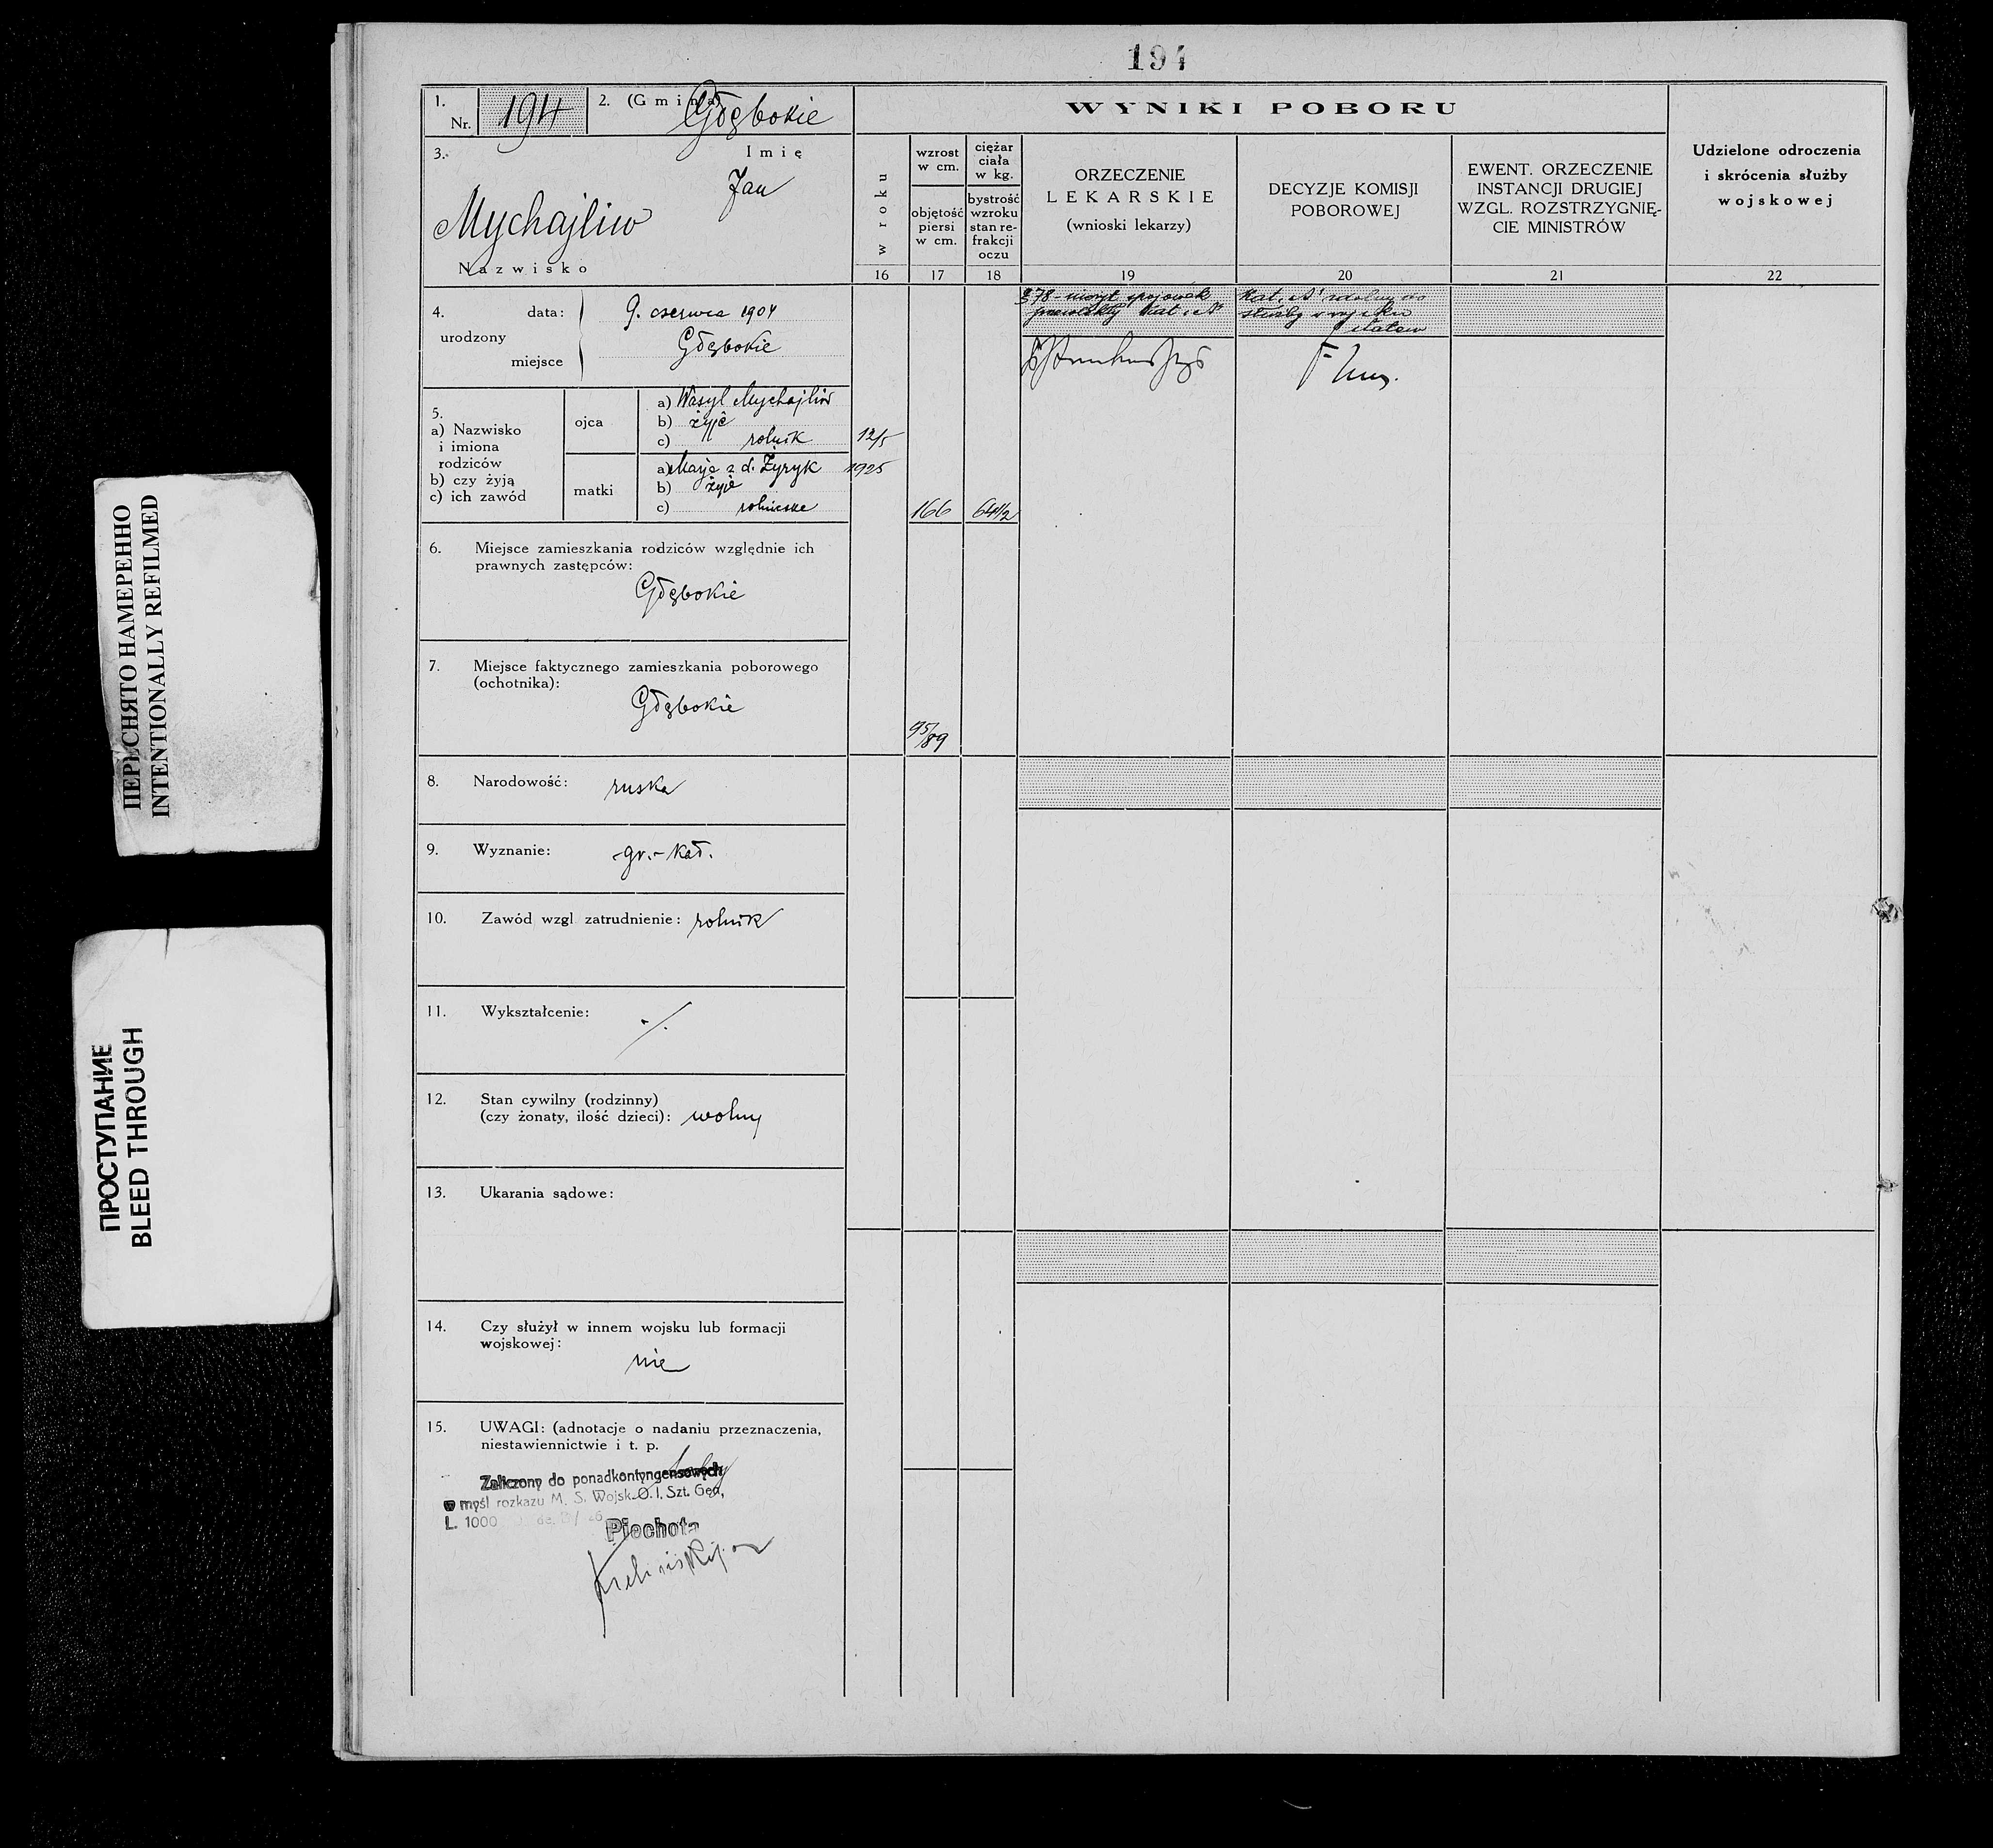 194
1.
Nr. 194
2. (Gmina) Głębokie
WYNIKI POBORU
3.
Imię
Jan
Mychajliw
Nazwisko
w roku
wzrost
w cm.
objętość
piersi
w cm.
ciężar
ciała
w kg.
bystrość
wzroku
stan re-
frakcji
oczu
ORZECZENIE
LEKARSKIE
(wnioski lekarzy)
DECYZJE KOMISJI
POBOROWEJ
EWENT. ORZECZENIE
INSTANCJI DRUGIEJ
WZGL. ROZSTRZYGNIĘ-
CIE MINISTRÓW
Udzielone odroczenia
i skrócenia służby
wojskowej
16 17 18 19 20 21 22
4. data: 9. czerwca 1904
urodzony
miejsce Głębokie
§ 78 - spojówek
przewlekły Kat. "A"
Kat. "A" zdolny do
służby wojsku
5.
a) Nazwisko
i imiona
rodziców
b) czy żyją
c) ich zawód
ojca
a) Wasyl Mychajliw
b) żyje
c) rolnik
matki
a) Marja z d. Żyryk
b) żyje
c)
12/5
1925
166
64 1/2
6. Miejsce zamieszkania rodziców względnie ich
prawnych zastępców:
Głębokie
7. Miejsce faktycznego zamieszkania poborowego
(ochotnika):
Głębokie
95/89
8. Narodowość: ruska
9. Wyznanie: gr.-kat.
10. Zawód wzgl zatrudnienie: rolnik
11. Wykształcenie: ·/.
12. Stan cywilny (rodzinny)
(czy żonaty, ilość dzieci): wolny
13. Ukarania sądowe:
14. Czy służył w innem wojsku lub formacji
wojskowej:
nie
15. UWAGI: (adnotacje o nadaniu przeznaczenia,
niestawiennictwie i t. p.
Zaliczony do ponadkontyngensowych
w myśl rozkazu M. S. Wojsk. O. I. Szt. Gen,
L. 1000
Piechota
ПЕРЕСНЯТО НАМЕРЕННО
INTENTIONALLY REFILMED
ПРОСТУПАНИЕ
BLEED THROUGH